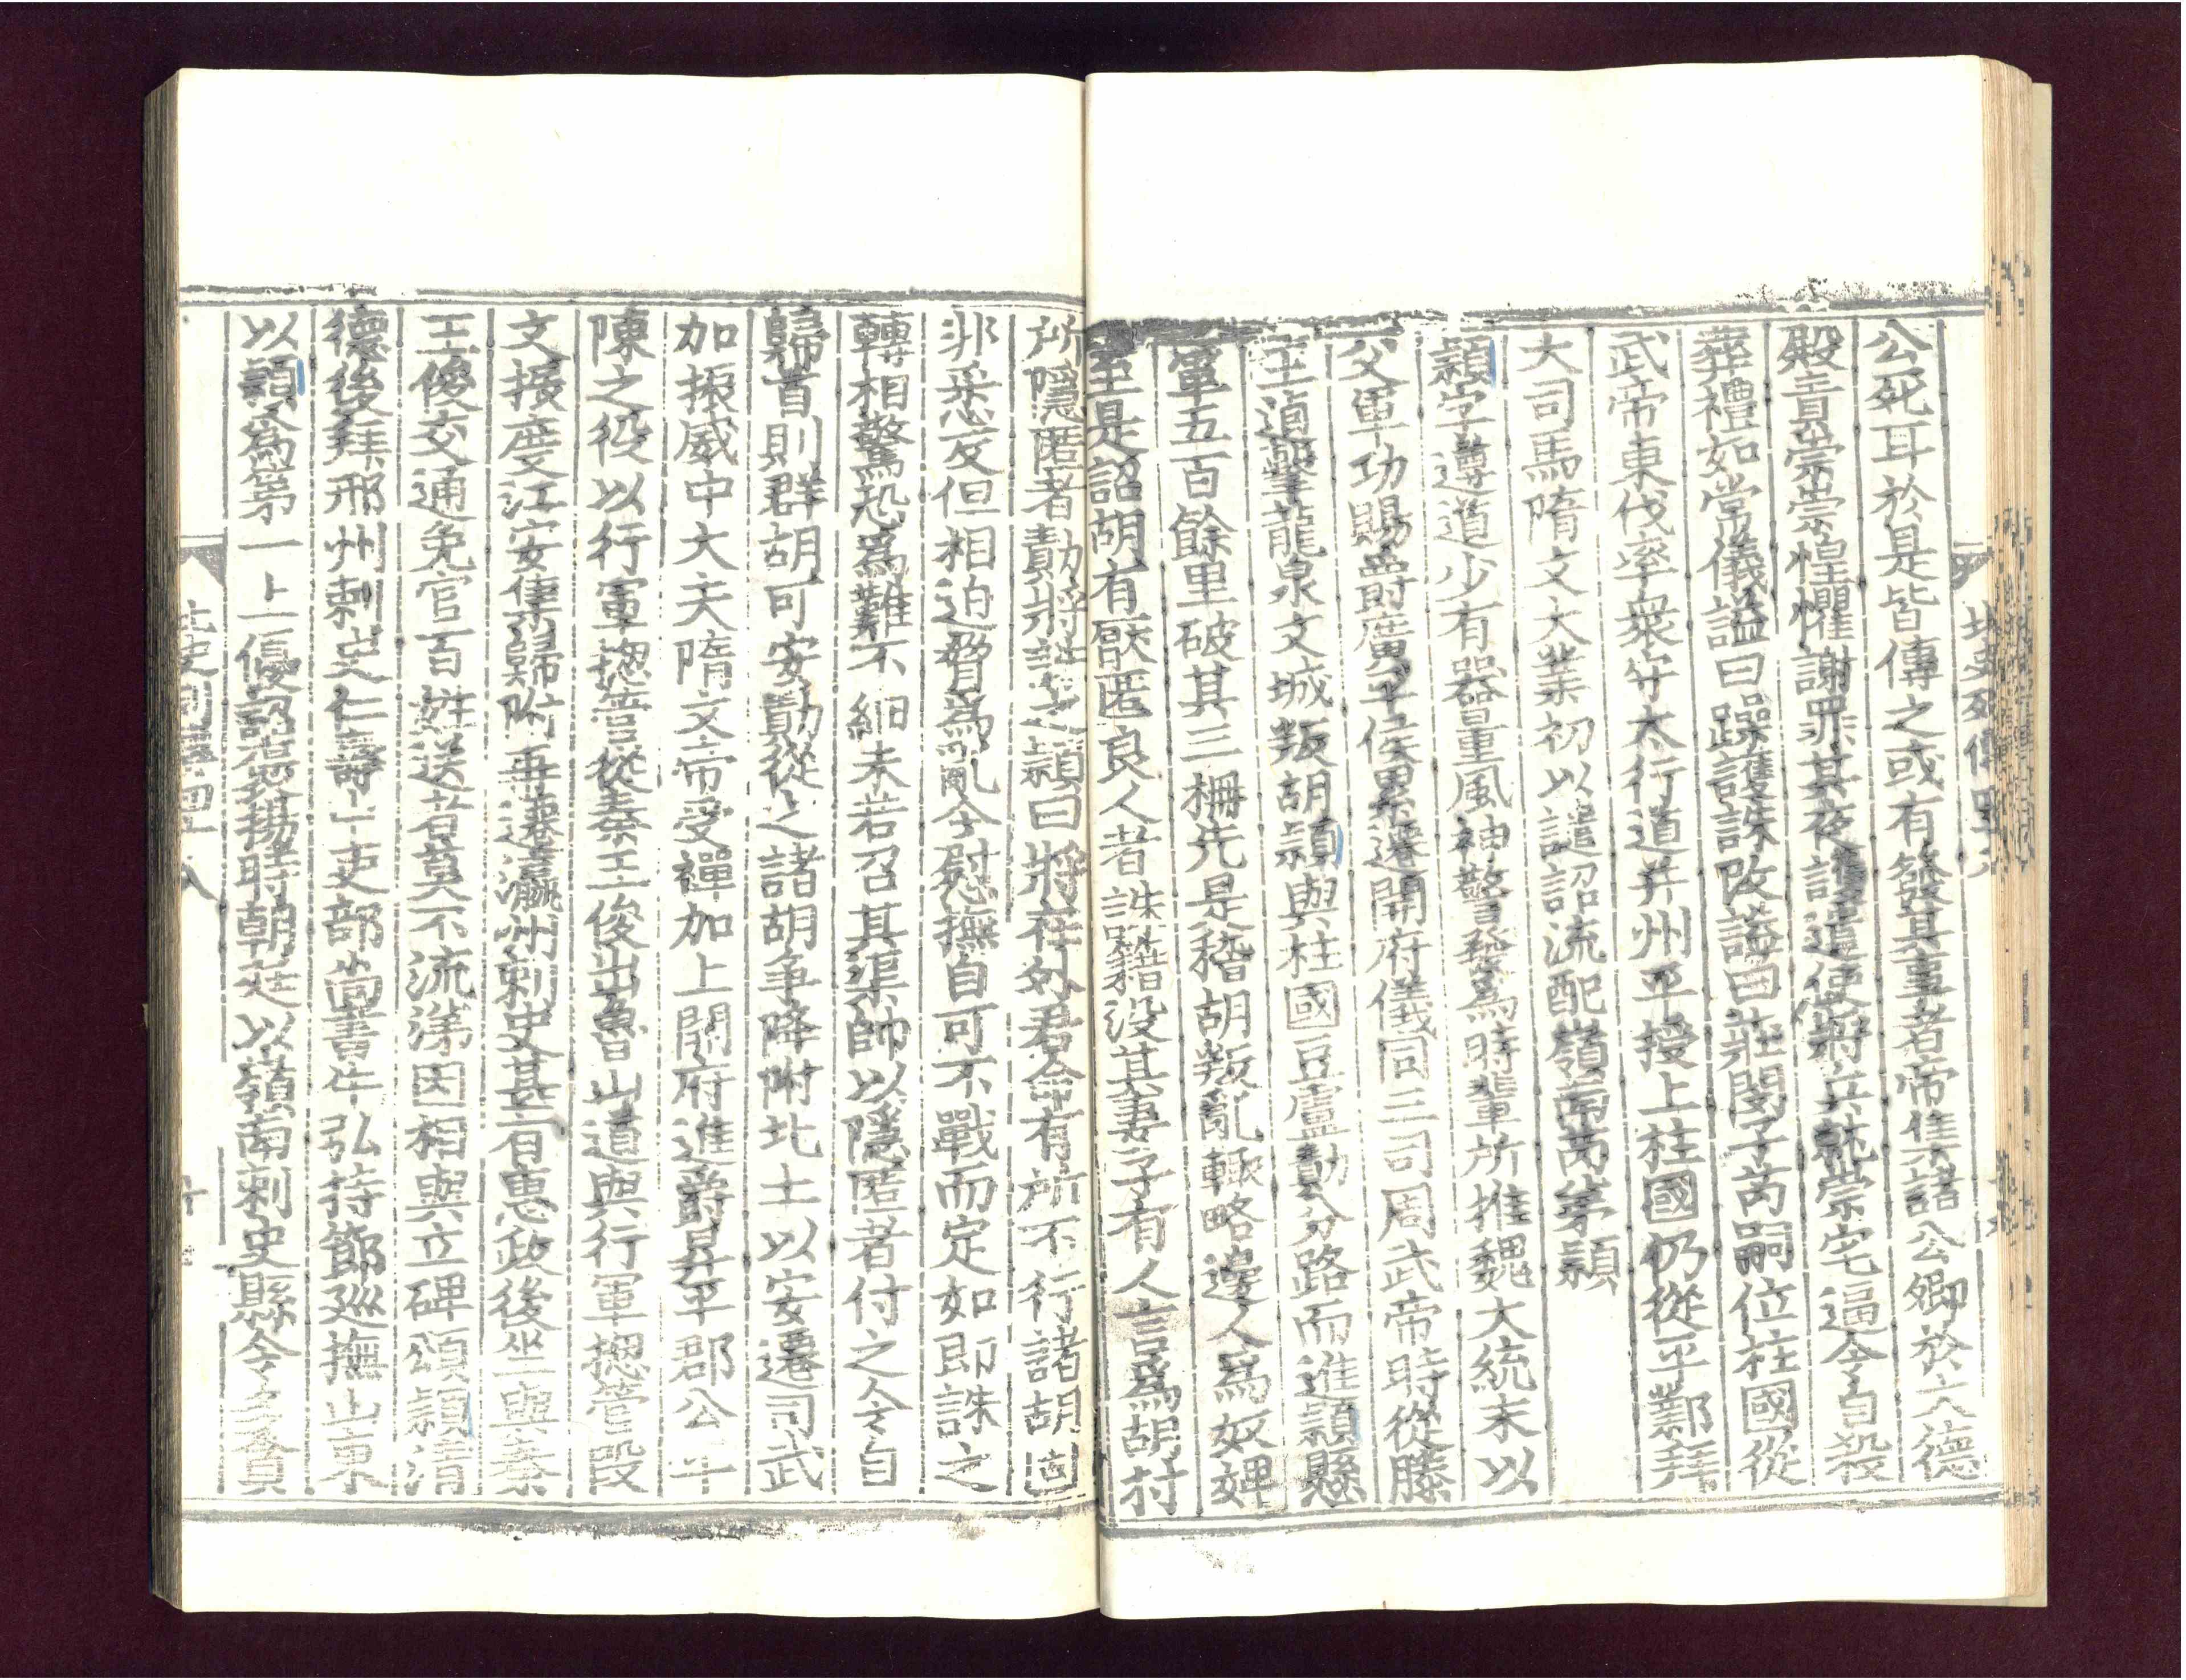 公死耳於是皆傳之或有發其事者帝集諸公卿於大德
殿責崇崇惶懼謝罪其夜護遣使將兵就崇宅逼令自殺
葬禮如常儀謚曰躁護誅改謚曰莊閔子芮嗣位柱國從
武帝東伐率衆守太行道并州平授上柱國仍從平鄴拜
大司馬隋文大業初以譴詔流配嶺南芮弟穎
穎字遵道少有器量風神警發爲時輩所推魏大統末以
父軍功賜爵廣平侯累遷開府儀同三司周武帝時從滕
王逌擊龍泉文城叛胡穎與柱國豆盧勣分路而進穎懸
軍五百餘里破其三柵先是稽胡叛亂輒略邊人爲奴婢
至是詔胡有厭匿良人者誅籍没其妻子有人言爲胡村
所隱匿者勣將誅之穎曰將在外君命有所不行諸胡固
非悉反但相迫脅爲亂今慰撫自可不戰而定如即誅之
轉相驚恐爲難不細未若召其渠帥以隱匿者付之令自
歸首則群胡可安勣從之諸胡爭降附北土以安遷司武
加振威中大夫隋文帝受禪加上開府進爵昇平郡公平
陳之役以行軍摠管從秦王俊出魯山道與行軍摠管段
文振度江安集歸附再遷瀛州刺史甚有惠政後坐與秦
王俊交通免官百姓送者莫不流涕因相與立碑頌穎清
德後拜邢州刺史仁壽中吏部尚書牛弘持節巡撫山東
以穎爲第一上優詔襃揚時朝廷以嶺南刺史縣令多貪